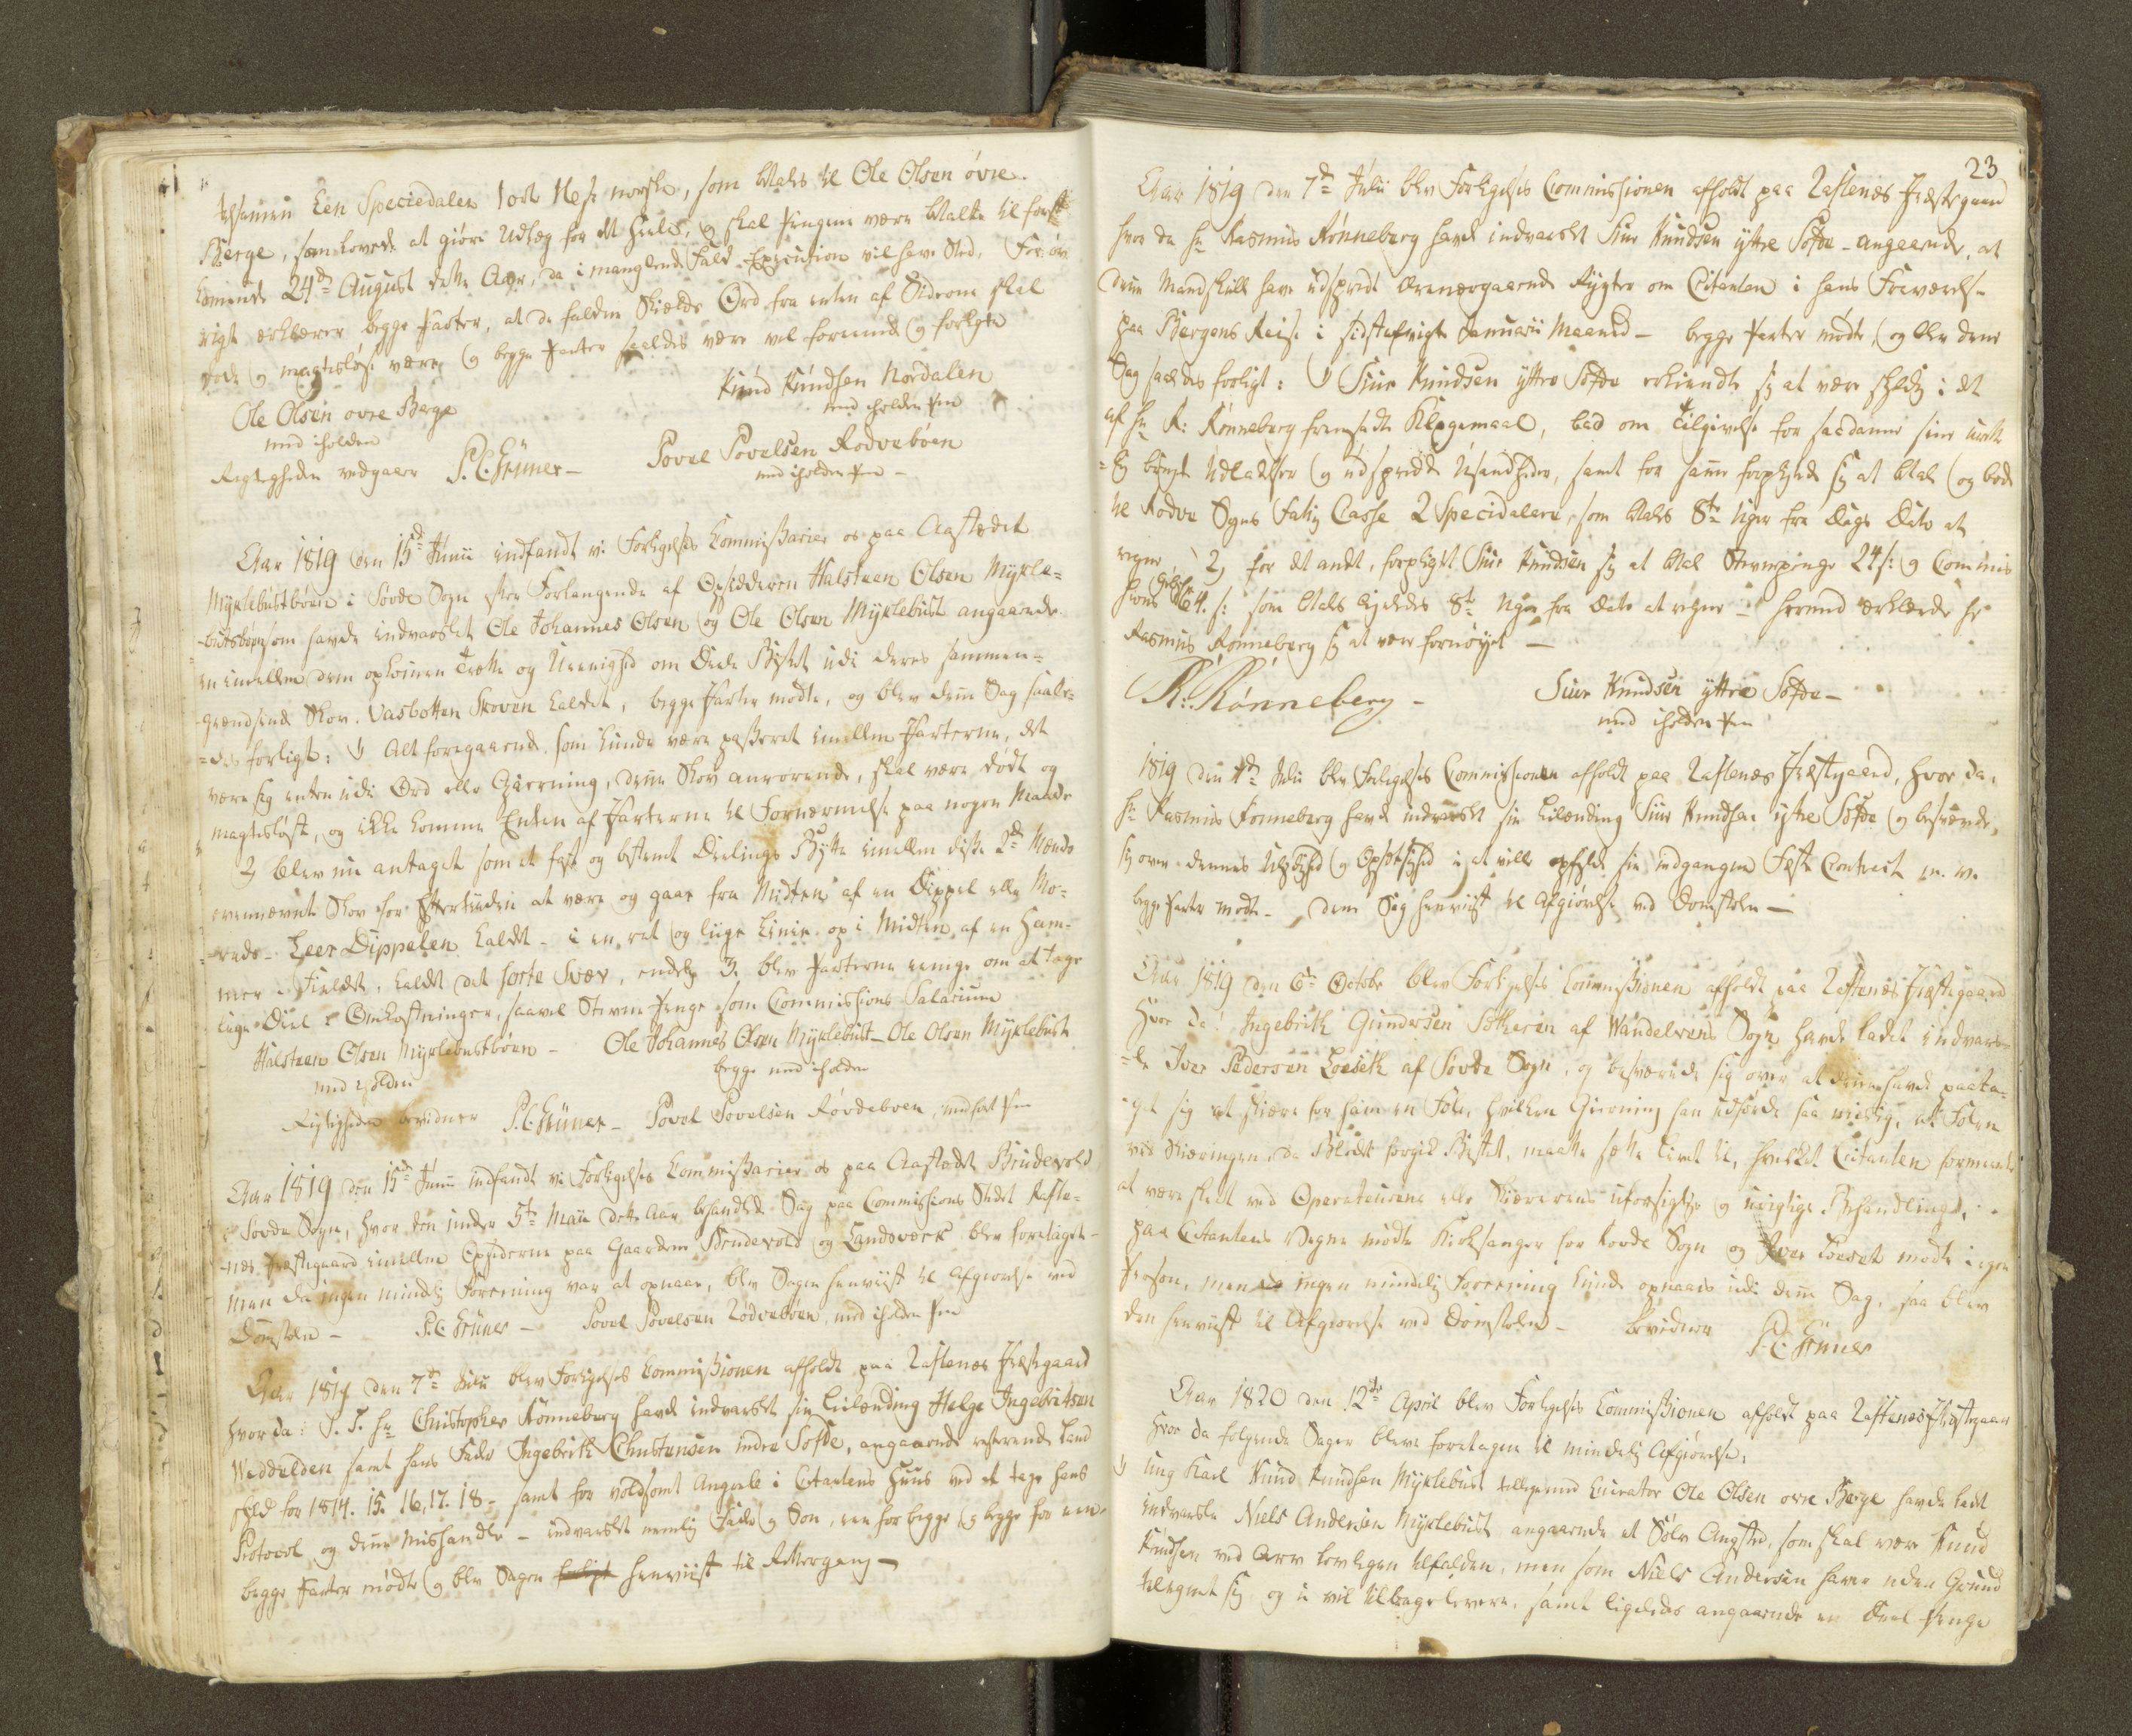 tilsamen Een Speciedaler 1 ort 16 s norske, som betales til Ole Olsen övre
Berge, som lovede at giöre Udlæg for det hele, og skal Pengene være betalte til först
komende 24de August dette Aar, da i manglende Fald Execution vil have Sted. For öv
rigt erklærer begge Parter, at de faldne Skields Ord fra enten af Siderne skal
döde og magtesløse være, og begge Parter saaledes være vel foreenede og forligte
Ole Olsen ovre Berge
Knud Knudsen Nordalen
med iholden
med iholden Pen
Rigtigheden vedgaaer P. C. Grüner - Povel Povelsen Rødvebøen
med iholden Pen -
Aar 1819 den 15de Junii indfandt vi Forligelses Commissarier os paa Aastædet
Myklebustbøen i Søvde Sogn efter Forlangende af Opsidderen Halsteen Olsen Mykle=
-bustbøen som havde indvarslet Ole Johannes Olsen og Ole Olsen Myklebust angaaende
en imellem dem opkomen Trætte og Ueenighed om Deele Byttet udi deres sammen=
grændsende Skov. Vasbotten Skoven kaldet, begge Parter mødte, og blev denne Sag saale=
=des forligt: 1) Alt foregaaende som kunde være passeret imellem Parterne, det
være sig enten udi Ord eller Gierning, denne Skov anrørende, skal være dødt og
magtesløst, og ikke komme Enten af Parterne til Fornærmelse paa nogen Maade
2) blev nu antaget som et fast og bestemt Deelings Bytte imellem disse 2de Mænds
ovennævnte Skov for Eftertiiden at være og gaae fra Midten af en Dippel eller Mo=
=rads - Leer Dippelen kaldet - i en ret og liige Linie op i Midten af en Ham=
mer i Fieldet, kaldet det sorte Svær, endelig 3. blev Parterne eenige om at tage
liige Deel i Omkostninger, saavel Stevne Penge som Commissions Salarium
Halsteen Olsen Myklebustbøen - Ole Johannes Olsen Myklebust - Ole Olsen Myklebust
med iholden
begge med iholden
Rigtigheden bevidner P. C. Grüner - Povel Povelsen Rövdeboen, med ført Pen
Aar 1819 den 15de Junii indfandt vi Forligelses Commissarier os paa Aastædet Brudevold
i Søvde Sogn, hvor den under 5te Maii dette Aar behandlede Sag paa Commissions Stedet Rafte=
-næs Præstegaard imellem Opsidderne paa Gaardene Brudevold og Landsværk blev foretaget -
Men da ingen mindelig Forening var at opnaae, blev Sagen henviist til Afgiørelse ved
Domstolen - P. C. Grüner - Povel Povelsen Rødvebøen med iholden Pen
Aar 1819 den 7de Julii blev Forligelses Commissionen afholdt paa Raftenæs Præstegaard
hvor da: S. T. Hr Christopher Rønneberg havde indvarslet sin Leilænding Helge Ingebritsen
samt hans Fader Ingebrith Christensen indre Søfde, angaaende resterende Land
skyld for 1814. 15. 16, 17. 18 - samt for voldsomt Angreb i Citantens Huus ved at tage hans
Protocol og denne Mishandle - indvarslet nemlig Fader og Søn, een for begge og begge for een.
begge Parter mødte og blev Sagen forligt henviist til Rettergang -
23
Aar 1819 den 7de Julii blev Forligelses Commissionen afholdt paa Raftenæs Præstegaard
hvor da Hr Rasmus Rønneberg havde indvarslet Siur Knudsen yttre Søfde - angaaende, at
denne Mand skulde have udspredt Ærenærgaaende Rygter om Citanten i hans Fraværelse
paa Bergens Reise i sidstafvigte Januarii Maaned - begge Parter mødte, og blev denne
Sag saaledes forligt: 1) Siur Knudsen yttre Søfde erkiendte sig at være skyldig i det
af Hr R: Rønneberg fremsadte Klagemaal, bad om Tilgivelse for saadanne sine
brugte Udladelser og udspredde Usandheder, samt for samme forpligtede sig at betale og bøde
til Rødve Sogns Fattig Casse 2 Speciedalere, som betales 8te Uger fra Dags Dato at
regne 2) for det andet, forpligtet Siur Knudsen sig at betale Stevnepenge 24 s: og Commis
sions Gebyhr 64. s: som betales ligeledes 8te Uger fra Dato at regne - hermed erklærede Hr
Rasmus Rønneberg sig at være fornøyet -
R: Rønneberg -
Siur Knudsen yttre Søfde -
med iholden Pen
1819 den 7de Julii blev Forligelses Commissionen afholdt paa Raftenæs Præstegaard, hvor da
Hr Rasmus Rønneberg havde indvarslet sin Leilænding Siur Knudsen ytre Søfde og besværede,
sig over dennes Ulydighed og Opsætsighed i at ville opfylde sin indgangne Fæste Contract m. m.
begge Parter mødte - denne Sag henviist til Afgiørelse ved Domstolen -
Aar 1819 den 6te Octobr blev Forligelses Commissionen afholdt paa Raftenæs Præstegaard
Hvor da: Ingebrith Gundersen Sætheren af Wandelvens Sogn havde ladet indvars=
=le Iver Pedersen Loeseth af Søvde Sogn, og besværede sig over at denne havde paata=
get sig at skiære for ham en Fole, hvilken Gierning han udførde saa urigtig, at Folen
ved Skiæringen da Blodet forgik Bestet, maatte sætte Livet til, hvilket Citanten formeente
at være skeet ved Operateurens eller Skiærerens uforsigtige og urigtige Behandlinger.
paa Citantens Vegne mødte Kirkesanger for Rovde Sogn og Iver Loeseth mødte i egen
Person, men ingen mindelig Forening kunde opnaaes udi denne Sag, saa blev
den henviist til Afgiørelse ved Domstolen - bevidner
P. C. Grüner
Aar 1820 den 12te April blev Forligelses Commissionen afholdt paa Raftenæs Præstegaard
Hvor da følgende Sager bleve foretagen til mindelig Afgiørelse.
1) Ung Karl Knud Knudsen Myklebust tilligemed Curator Ole Olsen övre Berge havde ladet
indvarsle Niels Andersen Myklebust angaaende et Sølv Angsted, som skal være Knud
Knudsen ved Arv lovligen tilfalden, men som Niels Andersen haver uden Grund
tilegnet sig og ei vil tilbagelevere, samt ligeledes angaaende en deel Penge